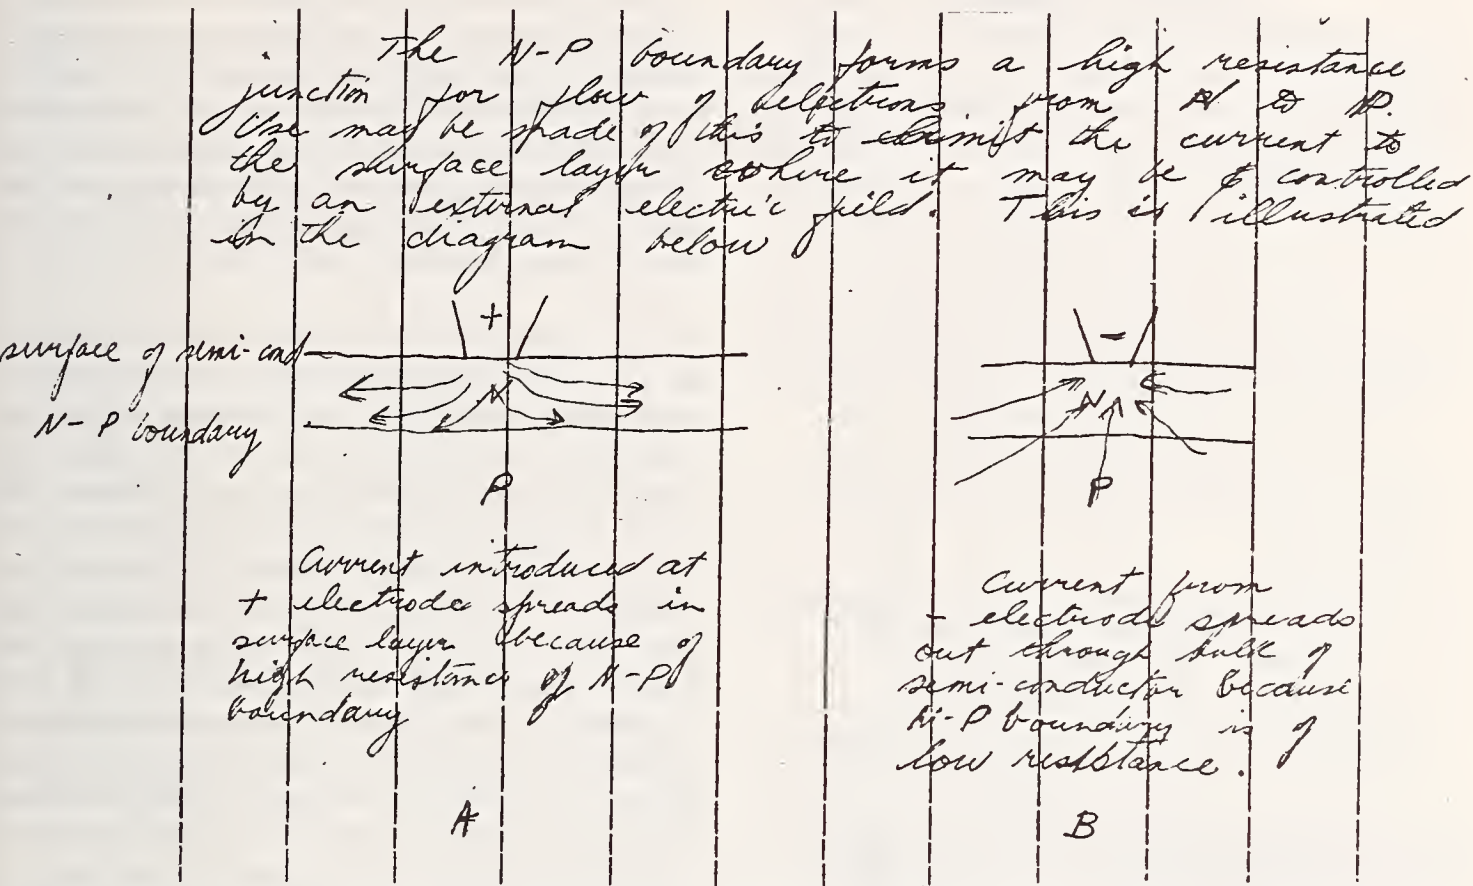 The N-P boundary forms a high resistance
junction for flow of electrons from N to P.
Use may be made of this to limit the current to
the surface layer where it may be controlled
by an external electric field. This is illustrated
in the diagram below
+
-
surface of semi-cond
N
N
N-P boundary
P
P
Current introduced at
+ electrode spreads in
surface layer because of
high resistance of N-P
boundary
Current from
- electrode spreads
out through bulk of
semi-conductor because
N-P boundary is of
low resistance.
A
B